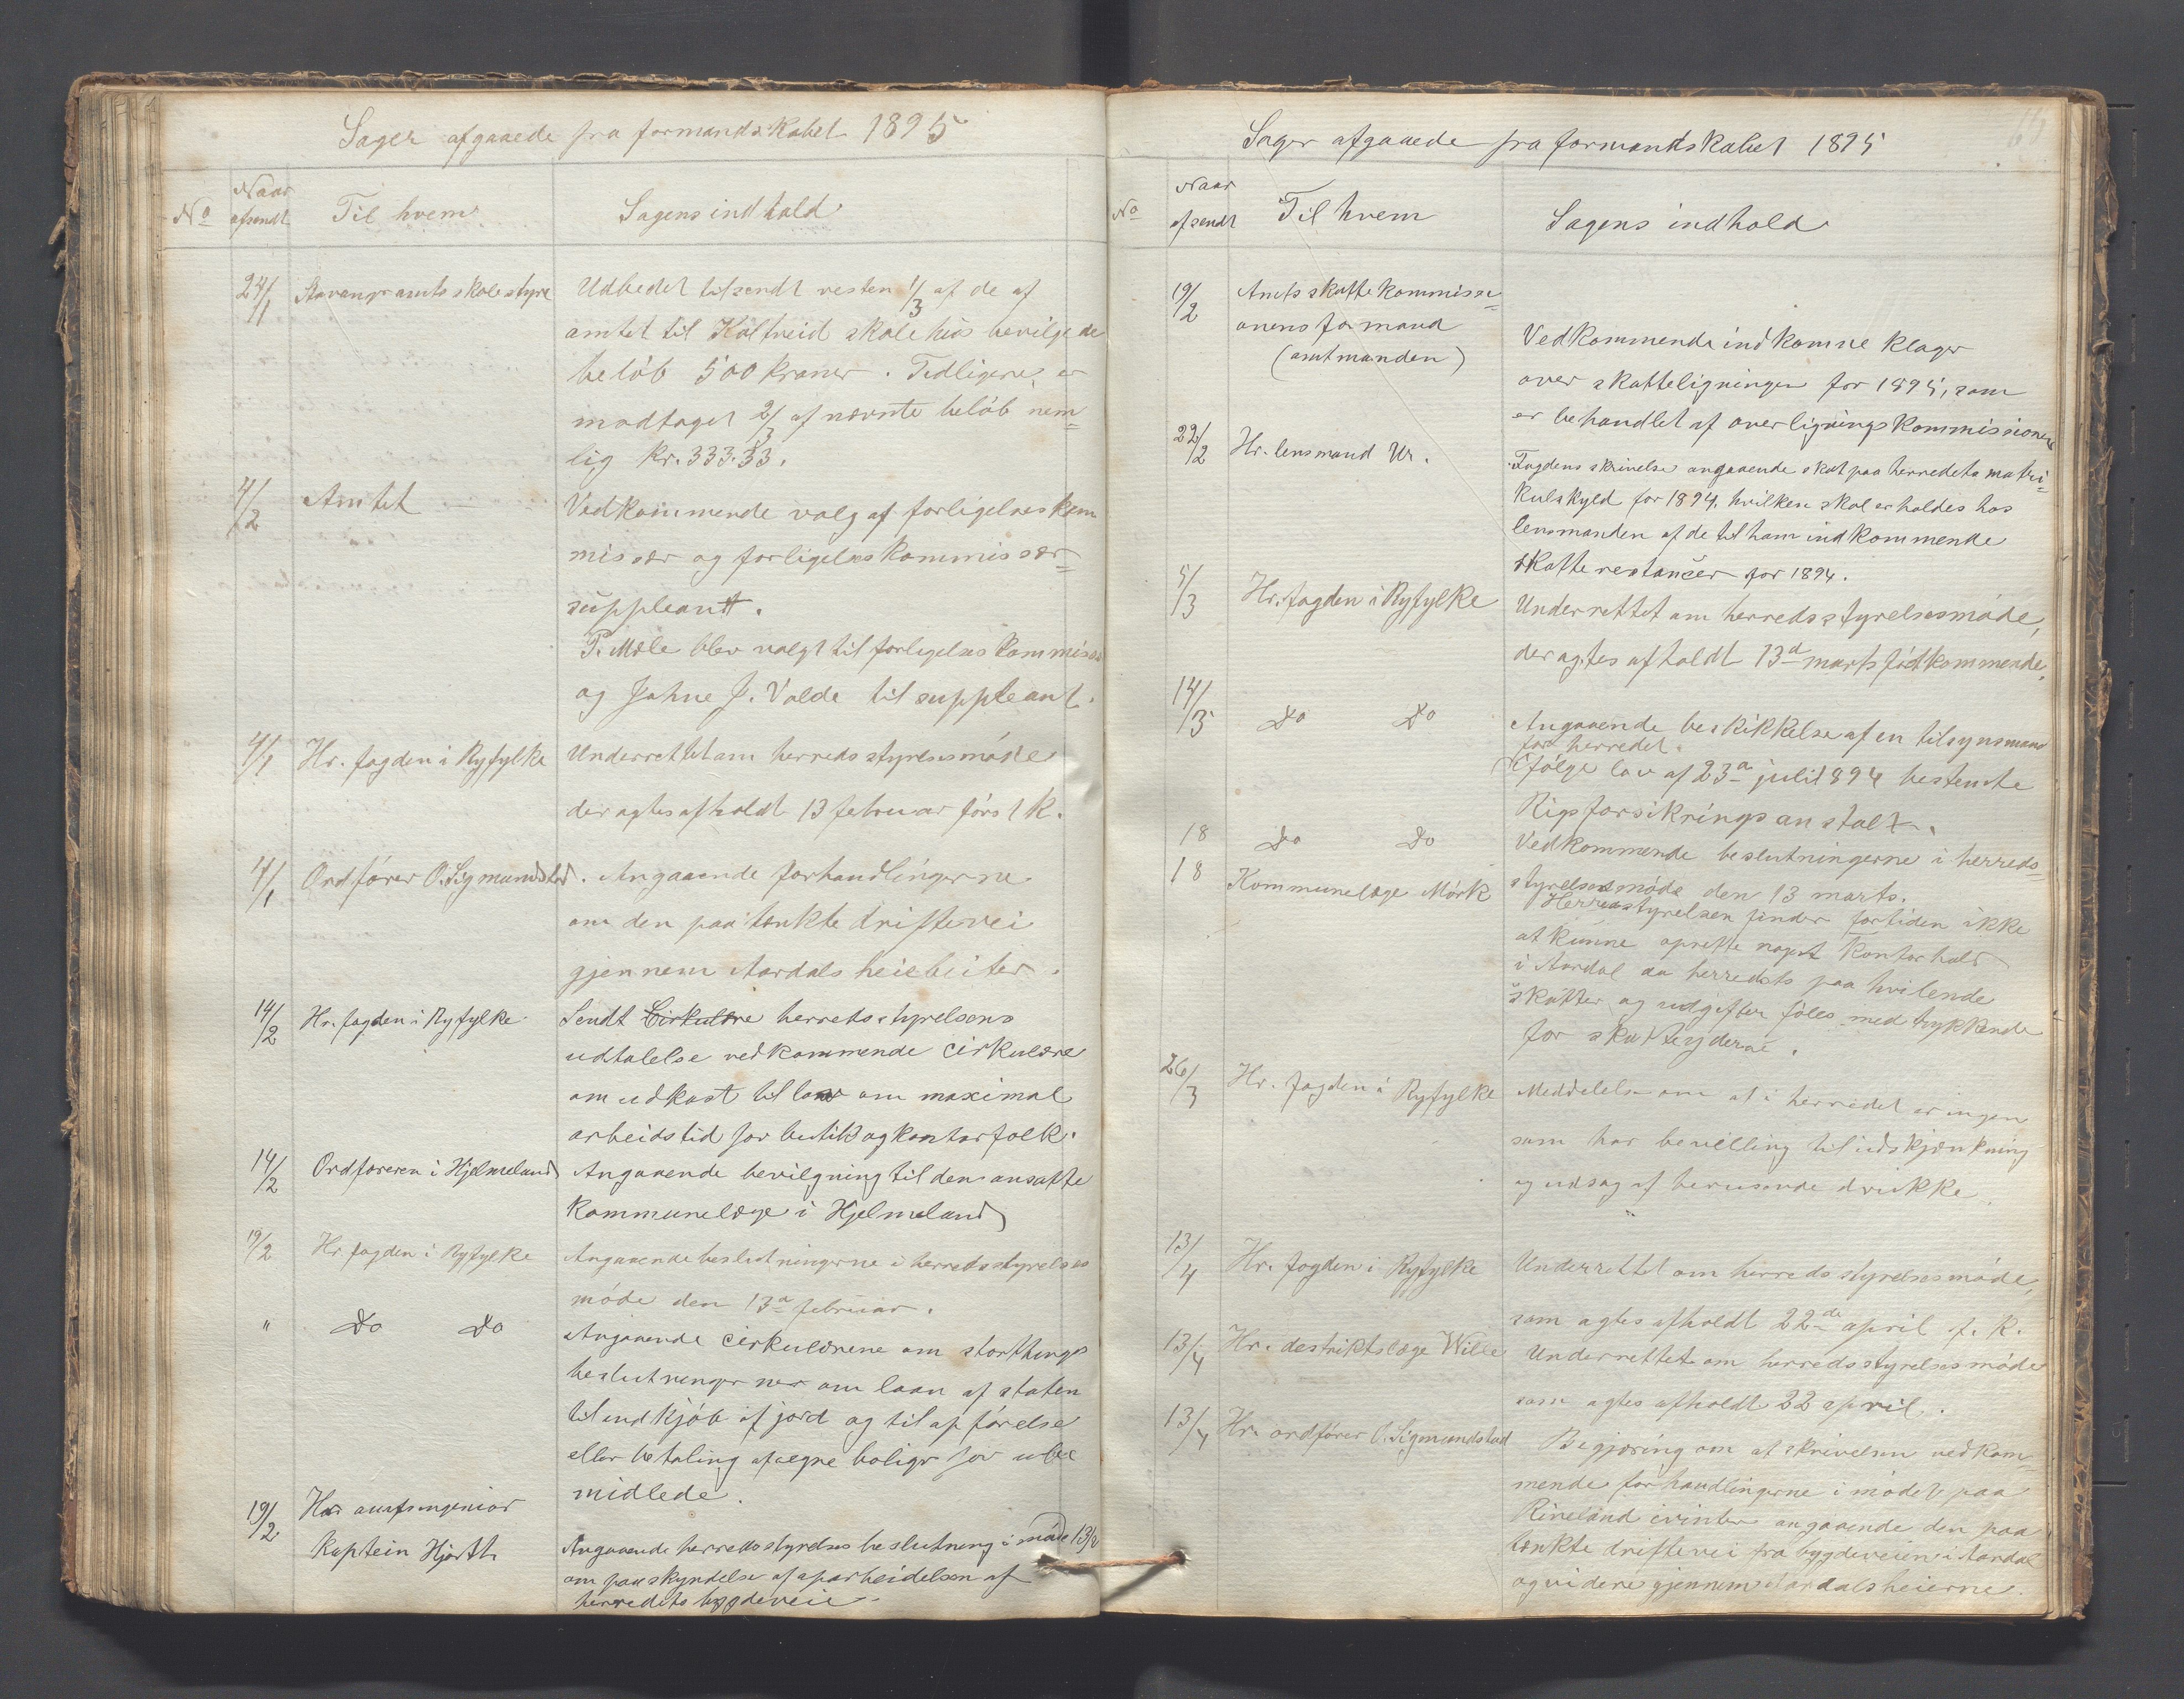 Sager afgaaede fra formandskabet 1895
No
Naar afsendt
Til hvem
Sagens indhold
24/1 Stavanger amts skolestyre Udbedet tilsendt resten 1/3 af de af
amtet til Kalhveid skolehus bevilgede
beløb 500 kroner. Tidligere er
modtaget 2/3 af nævnte beløb nem=
lig kr. 333.33.
4/2 Amtet Vedkommende valg af forligelseskom
missær og forligelseskommissær=
suppleant.
P. Mæle blev valgt til forligelseskommissær
og Johne J. Valde til suppleant.
4/1 Hr. fogden i Ryfylke Underrettet om herredsstyresmøde
der agtes afholdt 13 februar først k.
4/1 Ordfører O. Sigmundstad. Angaaende forhandlingerne
om den paatænkte driftevei
gjennem Aardals heiebeiter.
14/2 Hr. fogden i Ryfylke Sendt Cirkulære herredsstyrelsens
udtalelse vedkommende cirkulære
om udkast til lov om maximal
arbeidstid for butik og kontorfolk.
14/2 Ordføreren i Hjelmeland Angaaende bevilgning til den ansatte
kommunelæge i Hjelmeland
19/2 Hr. fogden i Ryfylke Angaaende beslutningerne i herredsstyrelses
møde den 13de februar.
" Do Do Angaaende cirkulærene om storthings
beslutninger om laan af staten
til indkjøb af jord og til opførelse
eller betaling af egne boliger for ube
midlede.
19/2 Hr amtsingeniør
kaptein Hjorth Angaaende herredsstyrelses beslutning i møde 13/2
om paaskyndelse af oparbeidelsen af
herredets bygdeveie.
Sager afgaaede fra formandskabet 1895
No
Naar afsendt
Til hvem
Sagens indhold
19/2 Amtsskattekommissi=
onens formand
(amtmanden)
Vedkommende indkomne klager
over skatteligningen for 1895, som
er behandlet af overligningskommissionen
22/2 Hr. lensmand Ur.
Fogdens skrivelse angaaende skat paa herredets matri=
kulskyld for 1894, hvilken skal erholdes hos
lensmanden af de til ham indkommende
skatterestancer for 1894.
5/3 Hr. fogden i Ryfylke Underrettet om herredsstyrelsesmøde,
der agtes afholdt 13de marts førstkommende,
14/3 Do Do Angaaende beskikkelse af en tilsynsmand
for herredet.
ifølge lov af 23de juli 1894 bestemte
Rigsforsikringsanstalt.
18 Do Do Vedkommende beslutningerne i herreds=
styrelsesmøde den 13 marts.
18 Kommunelæge Mørk Herredsstyrelsen finder fortiden ikke
at kunne oprette noget kontorhold
i Aardal da herredets paahvilende
skatter og udgifter føles med trykkende
for skatteyderne.
26/3 Hr. fogden i Ryfylke Meddelelse om at i herredet er ingen
som har bevilling til udskjænkning
og udsag af berusende drikke.
13/4 Hr. fogden i Ryfylke Underrettet om herredsstyrelsesmøde,
som agtes afholdt 22de april f. k.
13/4 Hr. destriktslæge Wille Underrettet om herredsstyrelsesmøde
som agtes afholdt 22 april.
13/4 Hr. ordfører O. Sigmundstad Begjæring om at skrivelsen vedkom=
mende forhandlingerne i mødet paa
Rineland ivinter angaaende den paa
tænkte driftevei fra bygdeveien i Aardal
og videre gjennem Aardalsheierne.